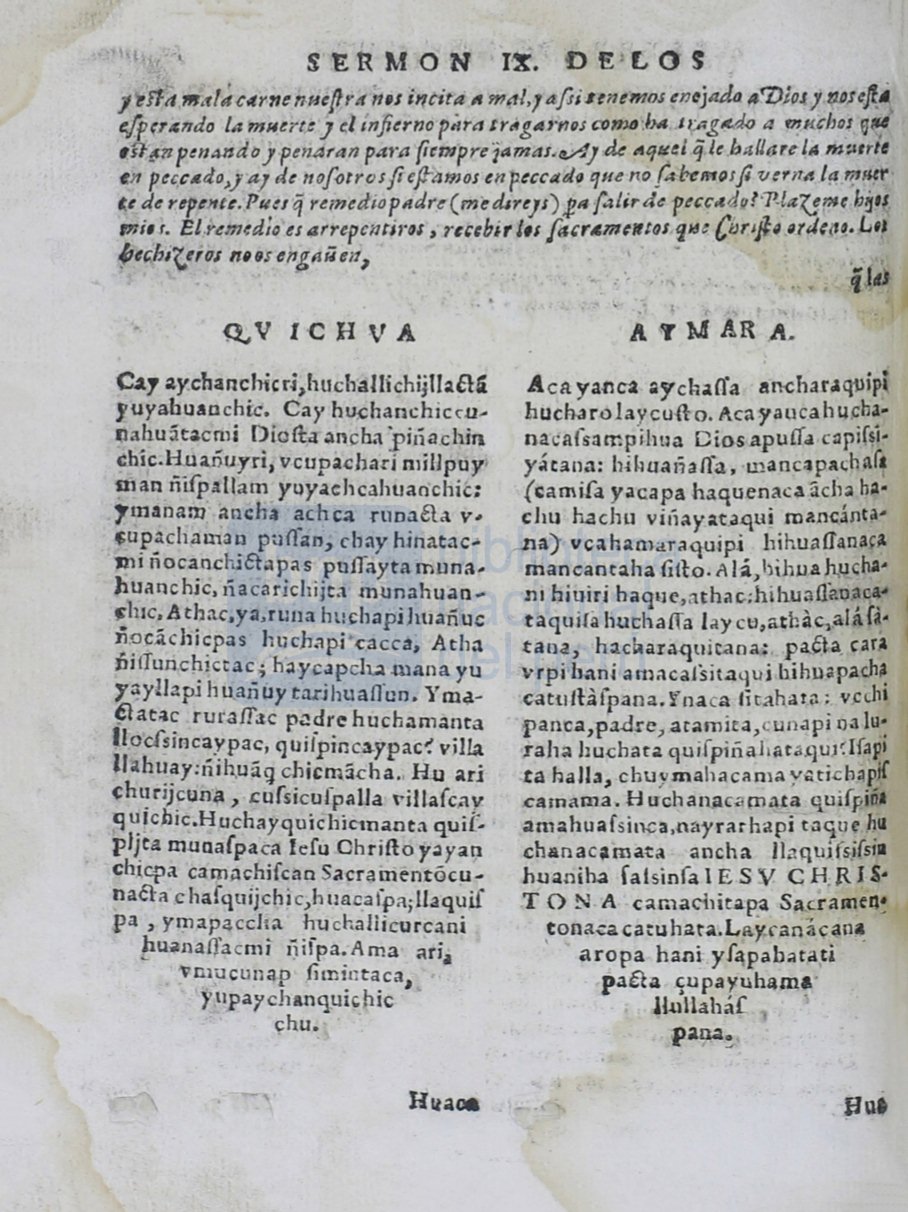 SERMON IX. DE LOS
y esta mala carne nueſtra nos incita a mal, y aſsi tenemos enojado a Dios y nos eſta
eſperando la muerte y el infierno para tragarnos como ha tragado a muchos que
eſtan penando y penaran para ſiempre jamas. Ay de aquel q̃ le hallare la muerte
en peccado, y ay de noſotros ſi eſtamos en peccado que no ſabemos ſi verna la muer
te de repente. Pues q̃ remedio padre (me direys) p̱a ſalir de peccado? Plazeme hijos
mios. El remedio es arrepentiros, recebir los ſacramentos que Chriſto ordeno. Los
hechizeros no os engañen,
q̃ las
QVICHVA
Cay aychanchicri, huchallichijllactã
yuyahuanchic. Cay huchanchiccu-
nahuãtacmi Dioſta ancha piñachin
chic. Huañuyri, vcupachari millpuy
man ñiſpallam yuyachcahuanchic:
ymanam ancha achca runacta v-
cupachaman puſſan, chay hinatac-
mi ñocanchictapas puſſayta muna-
huanchic, ñacarichijta munahuan-
chic, Athac, ya, runa huchapi huañuc
ñocãchicpas huchapi cacca, Atha
ñiſſunchictac; haycapcha mana yu
yayllapi huañuy tarihuaſſun. Yma-
ctatac ruraſſac padre huchamanta
llocſsincaypac, quiſpincaypac? villa
llahuay: ñihuãq̃ chicmãcha. Hu ari
churijcuna, cuſsicuſpalla villaſcay
quichic. Huchayquichicmanta quiſ-
pijta munaſpaca Ieſu Chriſto yayan
chicpa camachiſcan Sacramentõcu-
nacta chaſquijchic, huacaſpa, llaquiſ
pa, ymapaccha huchallicurcani
huanaſſacmi ñiſpa. Ama ari,
vmucunap ſimintaca,
yupaychanquichic
chu.
Huaca
AYMARA.
Aca yanca aychaſſa ancharaquipi
hucharo laycuſto. Aca yauca hucha-
nacaſsampihua Dios apuſſa capiſsi-
yátana: hihuañaſſa, mancapachaſa
(camiſa yacapa haquenaca ãcha ha-
chu hachu viñayataqui mancánta-
na) vcahamaraquipi hihuaſſanaca
mancantaha ſiſto. Alá, hihua hucha-
ni hiuiri haque, athac: hihuaſſanaca-
taquiſa huchaſſa laycu, athàc, alá ſà-
tana, hacharaquitana: pacta cara
vrpi hani amacaſsitaqui hihuapacha
catuſtàſpana. Ynaca ſitahata: vcchi
panca, padre, atamita, cunapi na lu-
raha huchata quiſpiñahataqui? Iſapi
ta halla, chuymahacama yatichapiſ
camama. Huchanacamata quiſpiña
amahuaſsinca, nayrarhapi taque hu
chanacamata ancha llaquiſsiſsin
huaniha ſalsinſa IESV CHRIS-
TONA camachitapa Sacramen-
tonaca catuhata. Laycanácana
aropa hani yſapahatati
pacta çupayuhama
llullaháſ
pana.
Hua